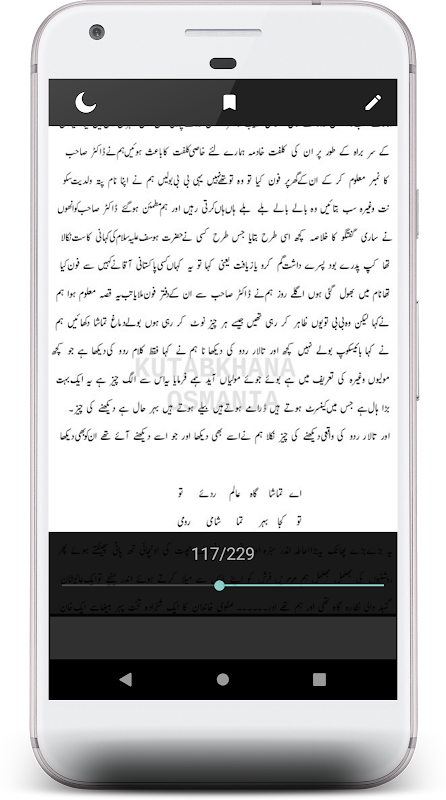 کے سر براہ کے طور پر ان کی کلفت خادمہ ہمارے لئے خاصی کلفت کا باعث ہوئیں ہم نے ڈاکٹر صاحب
کا نمبر معلوم کر کے ان کے گھر پر فون کیا تو وہ تو تھے نہیں یہی بی بی بولیں ہم نے اپنا نام پتہ ولدیت سکو
نت وغیرہ سب بتائیں وہ بالے بالے بلے بلے ہاں ہاں کرتی رہیں اور ہم مطمئن ہو گئے ڈاکٹر صاحب کو انھوں
نے ساری گفتگو کا خلاصہ کچھ اسی طرح بتایا جس طرح کسی نے حضرت یوسف علیہ سلام کی کہانی کا ست نکالا
تھا کپ پدرے بود پسرے داشت گم کرد بازیافت یعنی کہا تو یہ کہا کسی پاکستانی آقا نے کہیں سے فون کیا
تھا نام میں بھول گئی ہوں اگلے روز ہم نے ڈاکٹر صاحب سے ان کے دفتر فون ملایا تب یہ قصہ معلوم ہوا ہم
نے کہا لیکن وہ بی بی تو یوں ظاہر کر رہی تھیں جیسے ہر چیز نوٹ کر رہی ہوں بولے دماغ تماشا دکھائیں ہم
نے کہا بائیسکوپ بولے نہیں کچھ اور تالار ردو کی دیکھا نا ہم نے کہا فقط کلام ردو کی دیکھا ہے جو کچھ
مولیوں وغیرہ کی تعریف میں ہے بوئے جوئے مولیاں آید ہمے فرمایا یہ اس سے الگ چیز ہے یہ ایک بہت
بڑا ہال ہے جس میں کنسرٹ ہوتے ہیں ڈرامے ہوتے ہیں بیلے ہوتے ہیں بہر حال ہے دیکھنے کی چیز۔
اور تالار ردو کی واقعی دیکھنے کی چیز نکلا ہم نے اسے بھی دیکھا اور جو اسے دیکھنے آئے تھے ان کو بھی دیکھا
KUTABKHANA
OSMANIA
اے تماشا گاہ عالم روئے تو
تو کجا بہر تما شامی روی
117/229